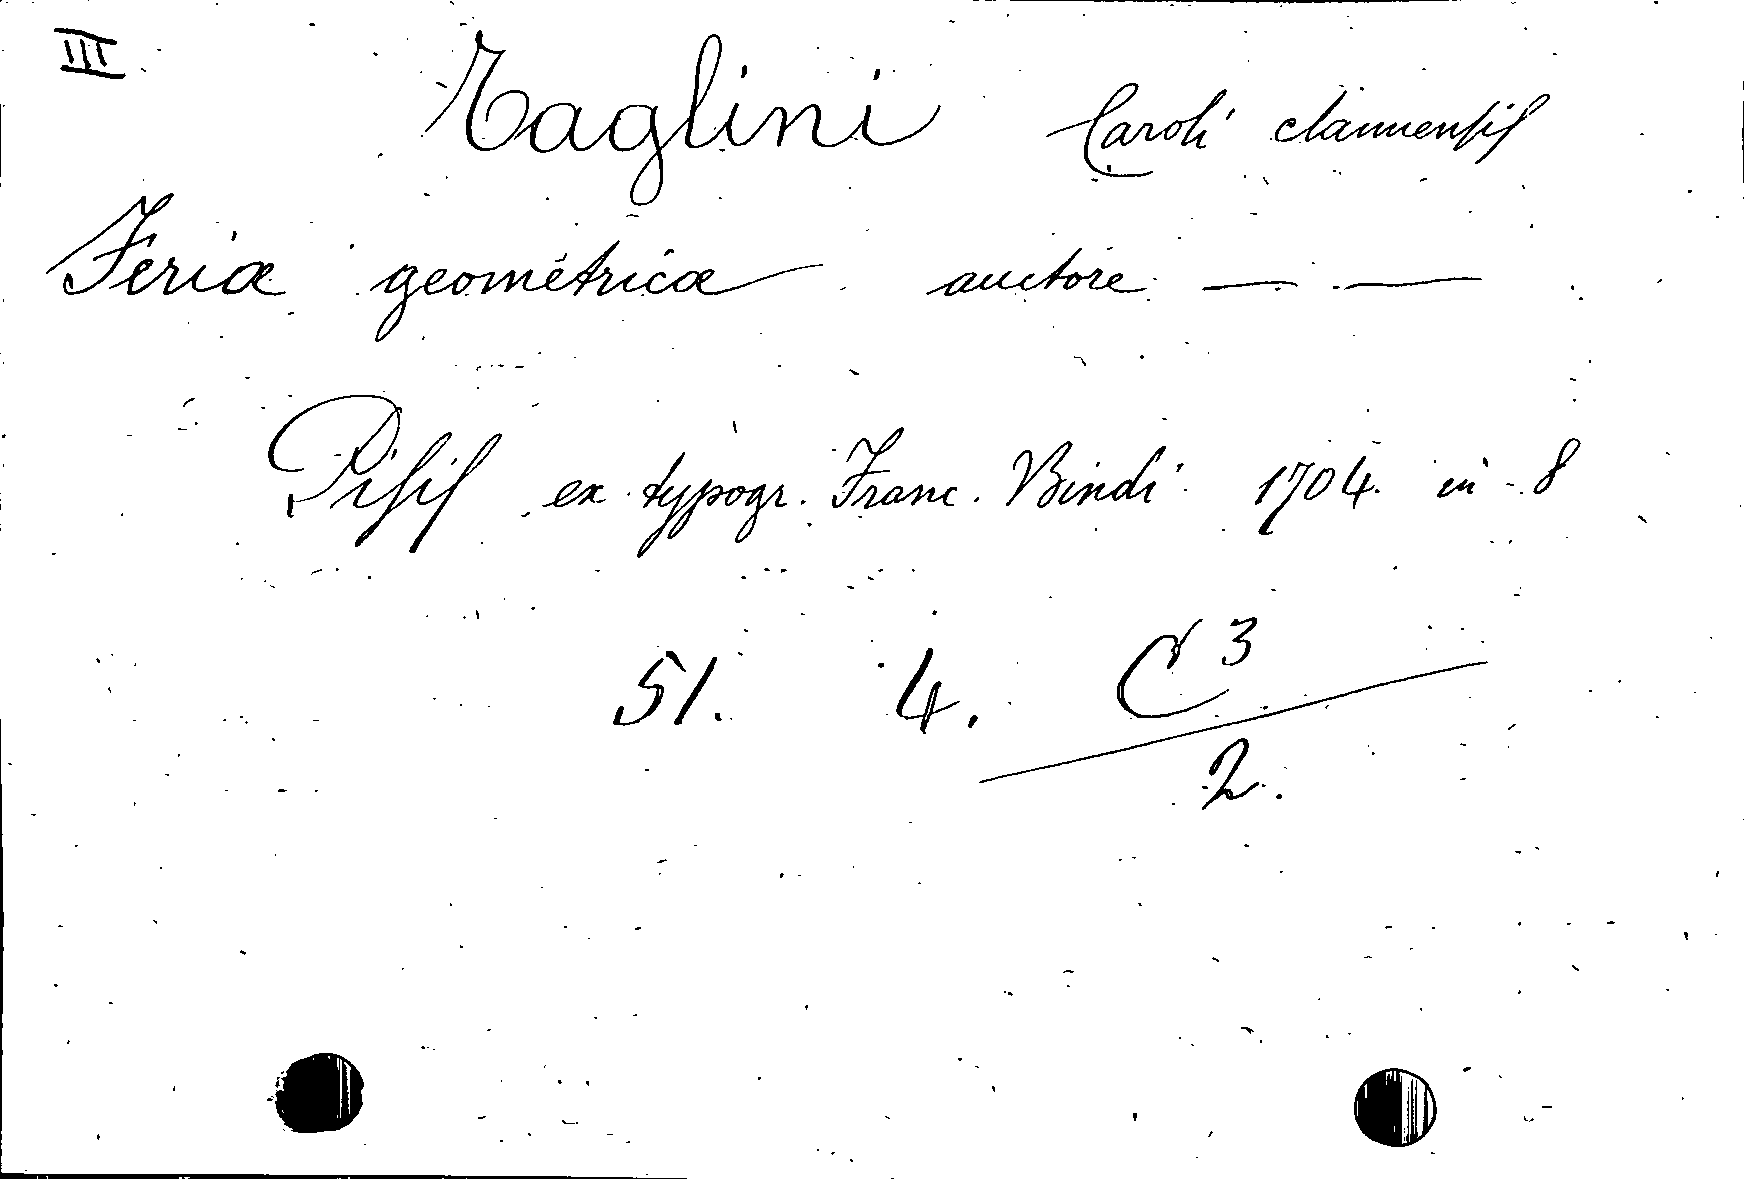 III
Taglini Caroli clannensis
Feriæ geometricæ auctore — —
Pisis ex typogr. Franc. Bindi 1704. in 8
51. 4. C 3
2.